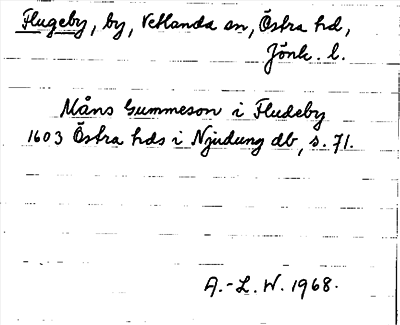 Flugeby, by, Vetlanda sn, Östra hd,
Jönk. l.
Måns Gummeson i Fludeby
1603 Östra hds i Njudung db, s. 71.
A.-L. W. 1968.